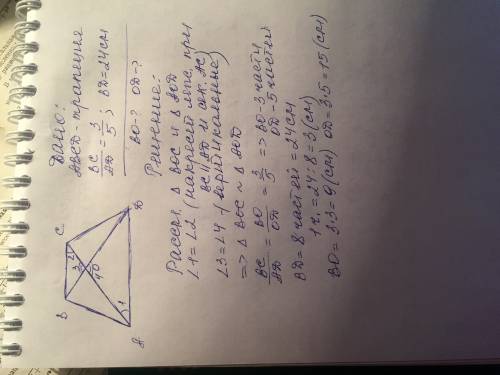 Дано:
ABCD - трапеция
BC/AD = 3/5; BD=24см
BO-? OD-?
B
C
A
D
O
1
2
3
4
Решение:
Рассм. Δ BOC и Δ AOD
∠1=∠2 (накрест леж. при
BC||AD и сек. AC)
∠3=∠4 - (вертикальные)
=> Δ BOC ~ Δ AOD
BC/AD = BO/OD = 3/5 => BO-3 части
OD-5 частей
BD = 8 частей = 24см
1ч. = 24:8 = 3(см)
BO = 3·3 = 9(см) OD = 3·5 = 15(см)